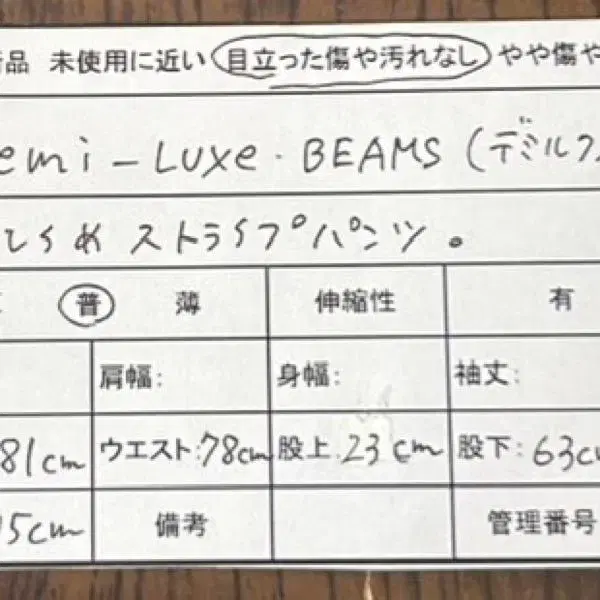 品 未使用に近い 目立った傷や汚れなし やや傷や
emi-Luxe. BEAMS (デミルク
ストライプパンツ。
普 薄 伸縮性 有
肩幅: 身幅: 袖丈:
81cm ウエスト:78cm 股上:23cm 股下:63c
5cm 備考 管理番号